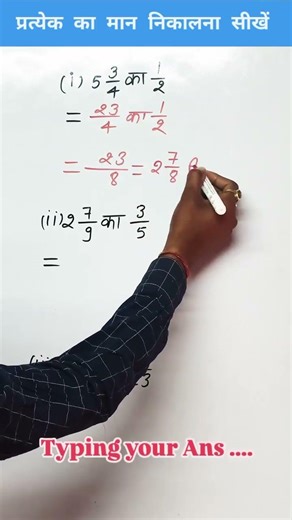 प्रत्येक का मान निकालना सीखें
(i) 5 3/4 का 1/2
= 23/4 का 1/2
= 23/8 = 2 7/8
(ii) 2 7/9 का 3/5
=
Typing your Ans ....